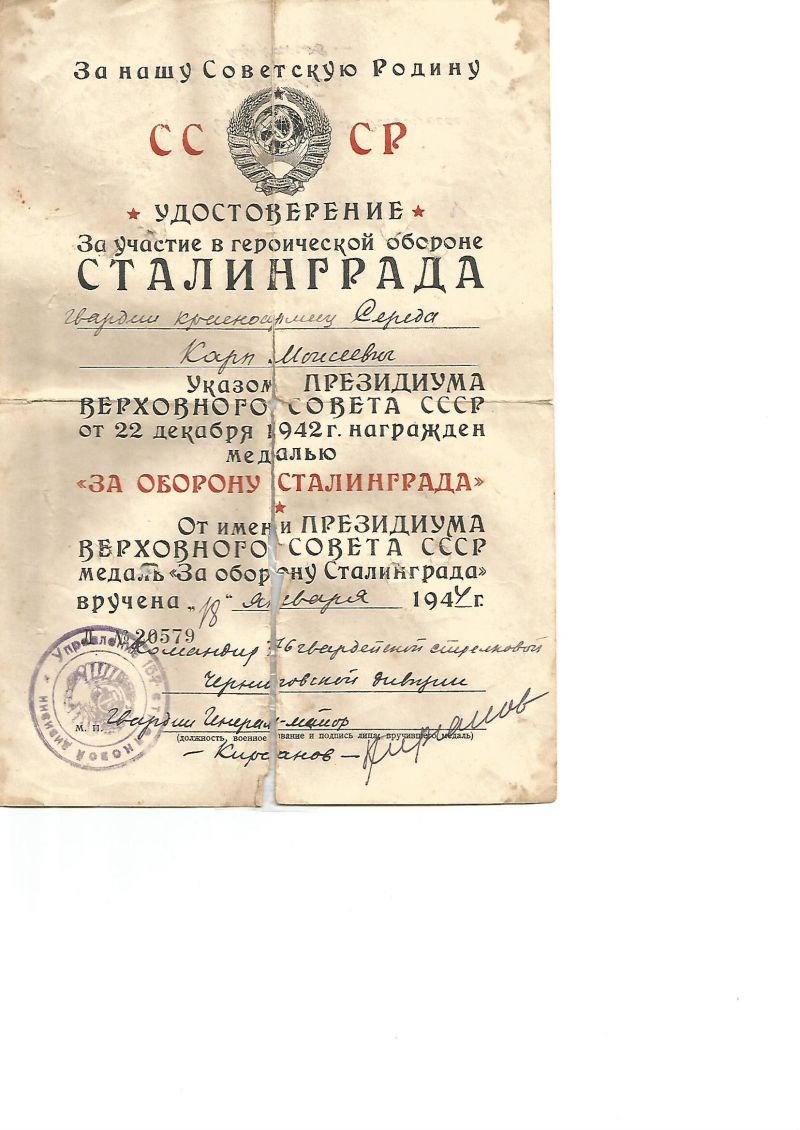 За нашу Советскую Родину
СС СР
УДОСТОВЕРЕНИЕ
За участие в героической обороне
СТАЛИНГРАДА
Гвардии красноармеец Середа
Карп Моисеевич
Указом ПРЕЗИДИУМА
ВЕРХОВНОГО СОВЕТА СССР
от 22 декабря 1942 г. награжден
медалью
«ЗА ОБОРОНУ СТАЛИНГРАДА»
От имени ПРЕЗИДИУМА
ВЕРХОВНОГО СОВЕТА СССР
медаль «За оборону Сталинграда»
вручена „18" января 1944 г.
Л № 20579
Командир 76 гвардейской стрелковой
Черниговской дивизии
М. П. Гвардии Генерал-майор
(должность, военное звание и подпись лица, вручившего медаль)
— Кирсанов — Кирсанов
Управление стрелковой дивизии